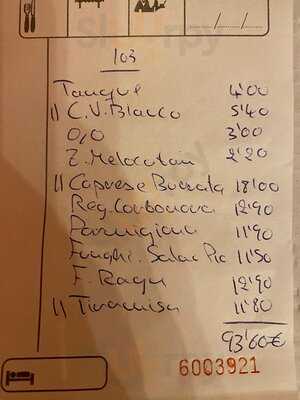 103
Tanque 4'00
11 C.V. Blanco 5'40
0,0 3'00
Z. Melocotón 2'20
11 Caprese Burrata 18'00
Reg. Carbonara 12'90
Parmigiana 11'90
Funghi. Salsa Pic 11'50
F. Ragu 12'90
11 Tiramisu 11'80
93'60€
6003921